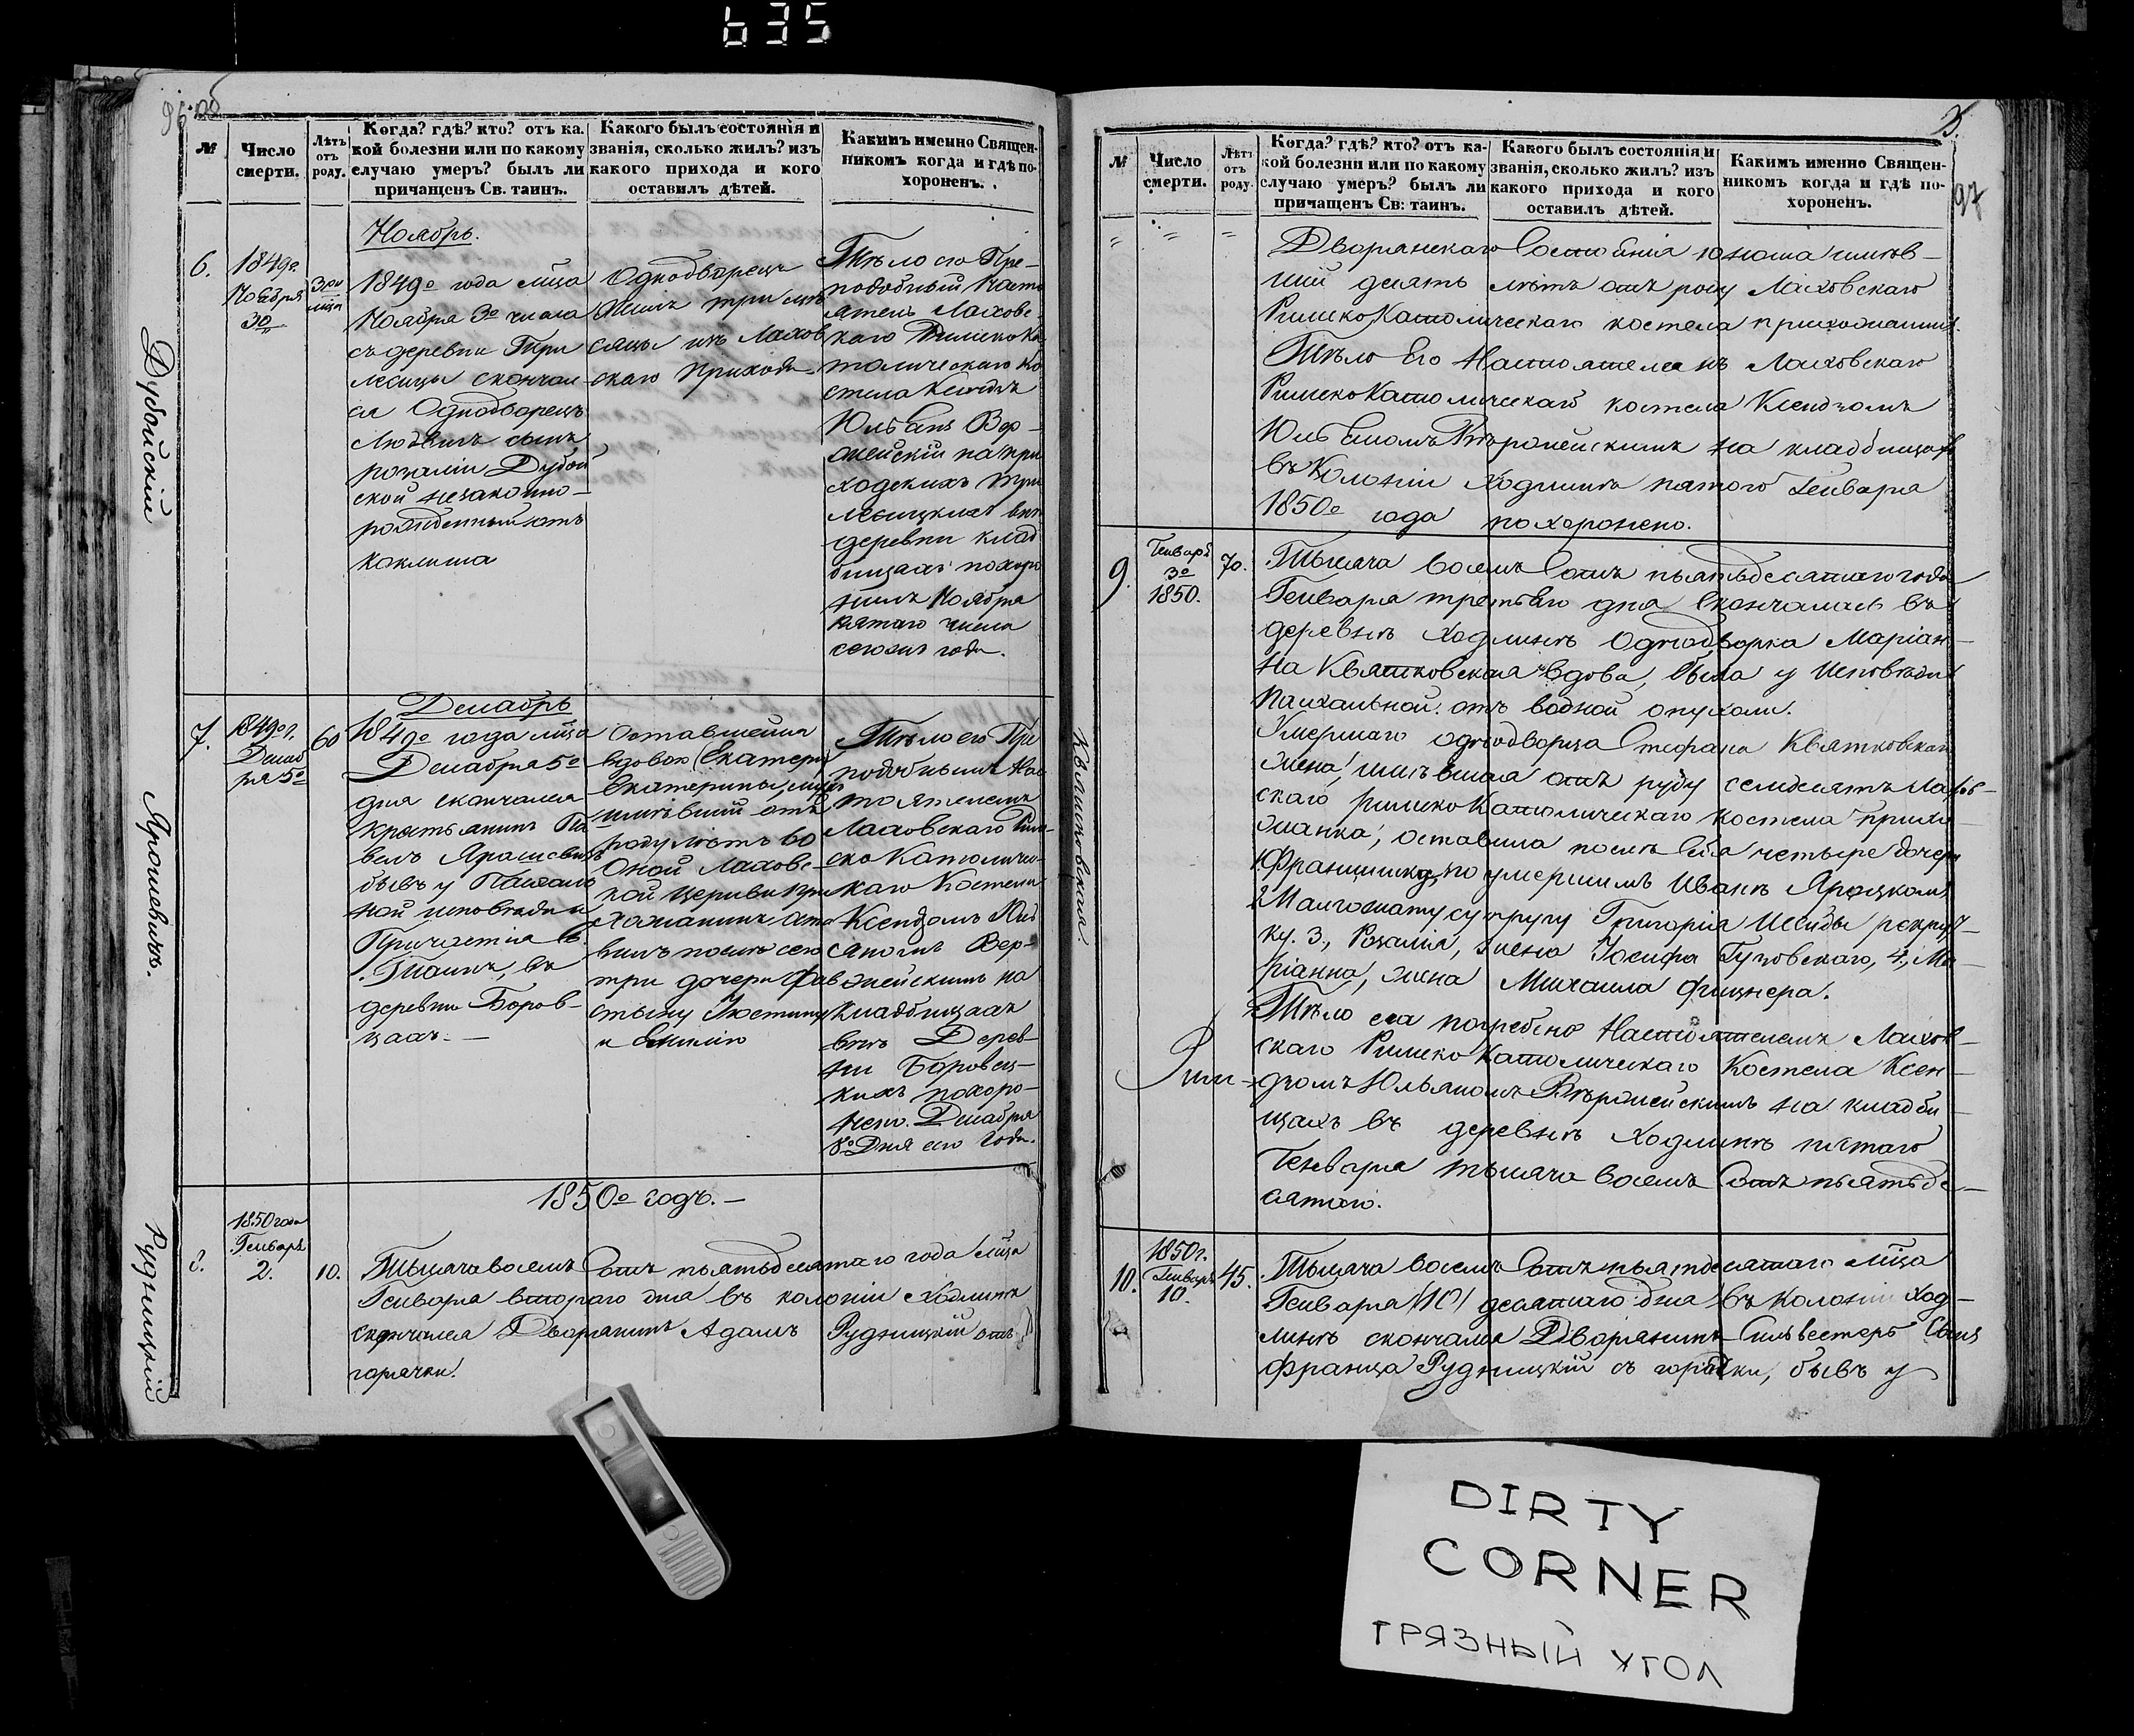 635
96 об
№
Число
смерти.
Лѣтъ
отъ
роду.
Когда? гдѣ? кто? отъ ка-
кой болезни или по какому
случаю умеръ? былъ ли
причащенъ Св. таинъ.
Какого былъ состоянія и
званія, сколько жилъ? изъ
какого прихода и кого
оставилъ дѣтей.
Какимъ именно Священ-
никомъ когда и гдѣ по-
хороненъ.
Дубойскій
Ноябрь.
6.
1849го
Ноября
3о
1849о года мѣца
Ноября 3о числа
съ деревни При
лесицы скончал
ся Однодворецъ
Людвигъ сынъ
розаліи Дубой
ской незаконно-
рожденный отъ
коклюша
Однодворецъ
Жилъ три мѣ
сяцы изъ Лахов
скаго Прихода
Тѣло его Пре-
подобный Насто
ятель Лаховс
каго Римско Ка
толическаго Ко
стела Ксендзъ
Юльянъ Вер-
жейскій на при
ходскихъ При
лесицкихъ внѣ
деревни клад
бищахъ похоро
нилъ Ноября
пятаго числа
сего года.
Ярошевичъ.
Декабрь
7.
1849о г.
Декаб
ря 5о
60
1849о года мѣца
Декабря 5о
дня скончался
крестьянинъ Па
велъ Ярошевичъ
бывъ у Пасхаль
ной исповѣди и
Причастія Св.
Таинъ, въ
деревни Боров-
цахъ. —
Оставшейся
вдовою (Екатери
Екатерины, мужъ
имѣвшій отъ
роду лѣтъ 60
Оной Лаховс-
кой Церкви при
хожанинъ оста
вилъ послѣ себя
три дочери Фав
стыну Юстину
и Емилію
Тѣло его Пре
подобнымъ Нас
тоятелемъ
Лаховскаго Рим
ско Католичес
каго Костела
Ксендзомъ Юль
яномъ Вер-
жейскимъ на
Кладбищахъ
внѣ Дерев-
ни Боровец-
кихъ похоро-
нено. Декабря
8о Дня его года.
1850о годъ. —
Рудницкій
8.
1850 года
Генварь
2.
10.
Тысяча восемъ сотъ пьятьдесятаго года мѣца
Генваря второго дня въ колоніи Ходлинѣ
скончался Дворянинъ Адамъ Рудницкій отъ
горячки.
3.
97
№
Число
смерти.
Лѣтъ
отъ
роду.
Когда? гдѣ? кто? отъ ка-
кой болезни или по какому
случаю умеръ? былъ ли
причащенъ Св: таинъ.
Какого былъ состоянія и
званія, сколько жилъ? изъ
какого прихода и кого
оставилъ дѣтей.
Какимъ именно Священ-
никомъ когда и гдѣ по-
хороненъ.
Дворянскаго Состоянія юноша имѣв-
шій десять лѣтъ отъ роду Лаховскаго
Римско Католическаго костела прихожанинъ.
Тѣло Его Настоятелемъ Лаховскаго
Римско Католическаго костела Ксендзомъ
Юльяномъ Вержейскимъ на кладбищахъ
въ Колоніи Ходлинѣ пятого Генваря
1850о года похоронено.
Квятковская.
9.
Генваря
3о
1850.
70.
Тысяча восемъ сотъ пьятьдесятаго года
Генваря третьяго дня скончалась въ
деревнѣ Ходлинѣ Однодворка Маріан-
на Квятковская вдова, была у Исповѣди
Пасхальной. отъ водной опухоли.
Умершаго однодворца Стефана Квятковскаго
Жена, имѣвшая отъ роду семдесятъ Лахов-
скаго римско Католическаго костела прихо
жанка, оставила послѣ себя четыре дочери
1. Францишка, по умершимъ Иванѣ Яроцкомъ
2. Малгожату супругу Григорія рекрут-
ку. 3., Розалія, жена Іосифа Гутовскаго, 4., Ма-
ріанна, жена Михаила Фицнера.
Тѣло ея погребено Настоятелемъ Лахов-
скаго Римско Католическаго Костела Ксен-
дзомъ Юльяномъ Вержейскимъ на кладби-
щахъ въ деревнѣ Ходлинѣ пятаго
Генваря тысяча восемъ сотъ пьятьде-
сятаго.
10.
1850 г.
Генваря
10.
45.
Тысяча восемъ сотъ пьятдесятаго мѣца
Генваря (10) десятаго дня въ Колоніи Ход-
линѣ скончался Дворянинъ Сильвестеръ Сынъ
Франца Рудницкій съ горячки, бывъ у
DIRTY
CORNER
ГРЯЗНЫЙ УГОЛ